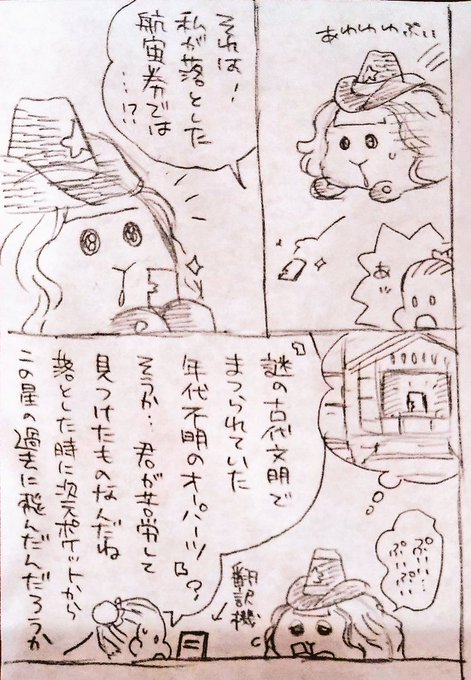 あわわわぷぃ
あッ
それは!
私が落とした
航宙券では
…!?
ぷい…ぷい…
ぷいぷい
『謎の古代文明で
まつられていた
年代不明のオーパーツ』?
そうか…君が苦労して
見つけたものなんだね
落とした時に次元ポケットから
この星の過去に飛んだんだろうか
翻訳機